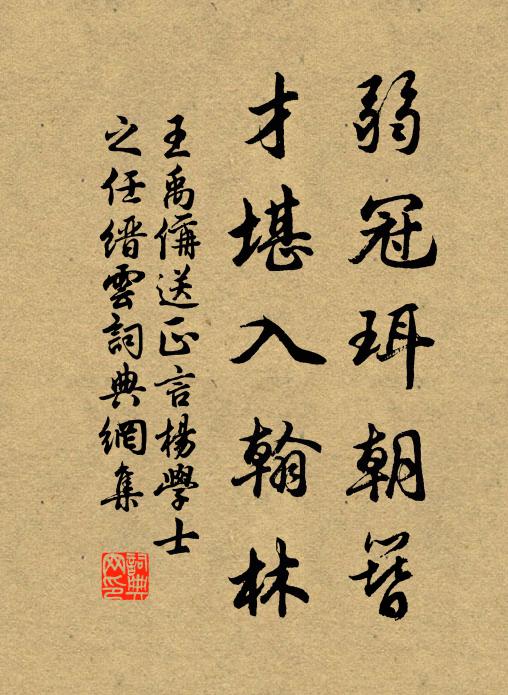 弱冠珥朝簪
才堪入翰林
王禹偁送正言楊學士
之任縉雲詞典網集
詞典網印